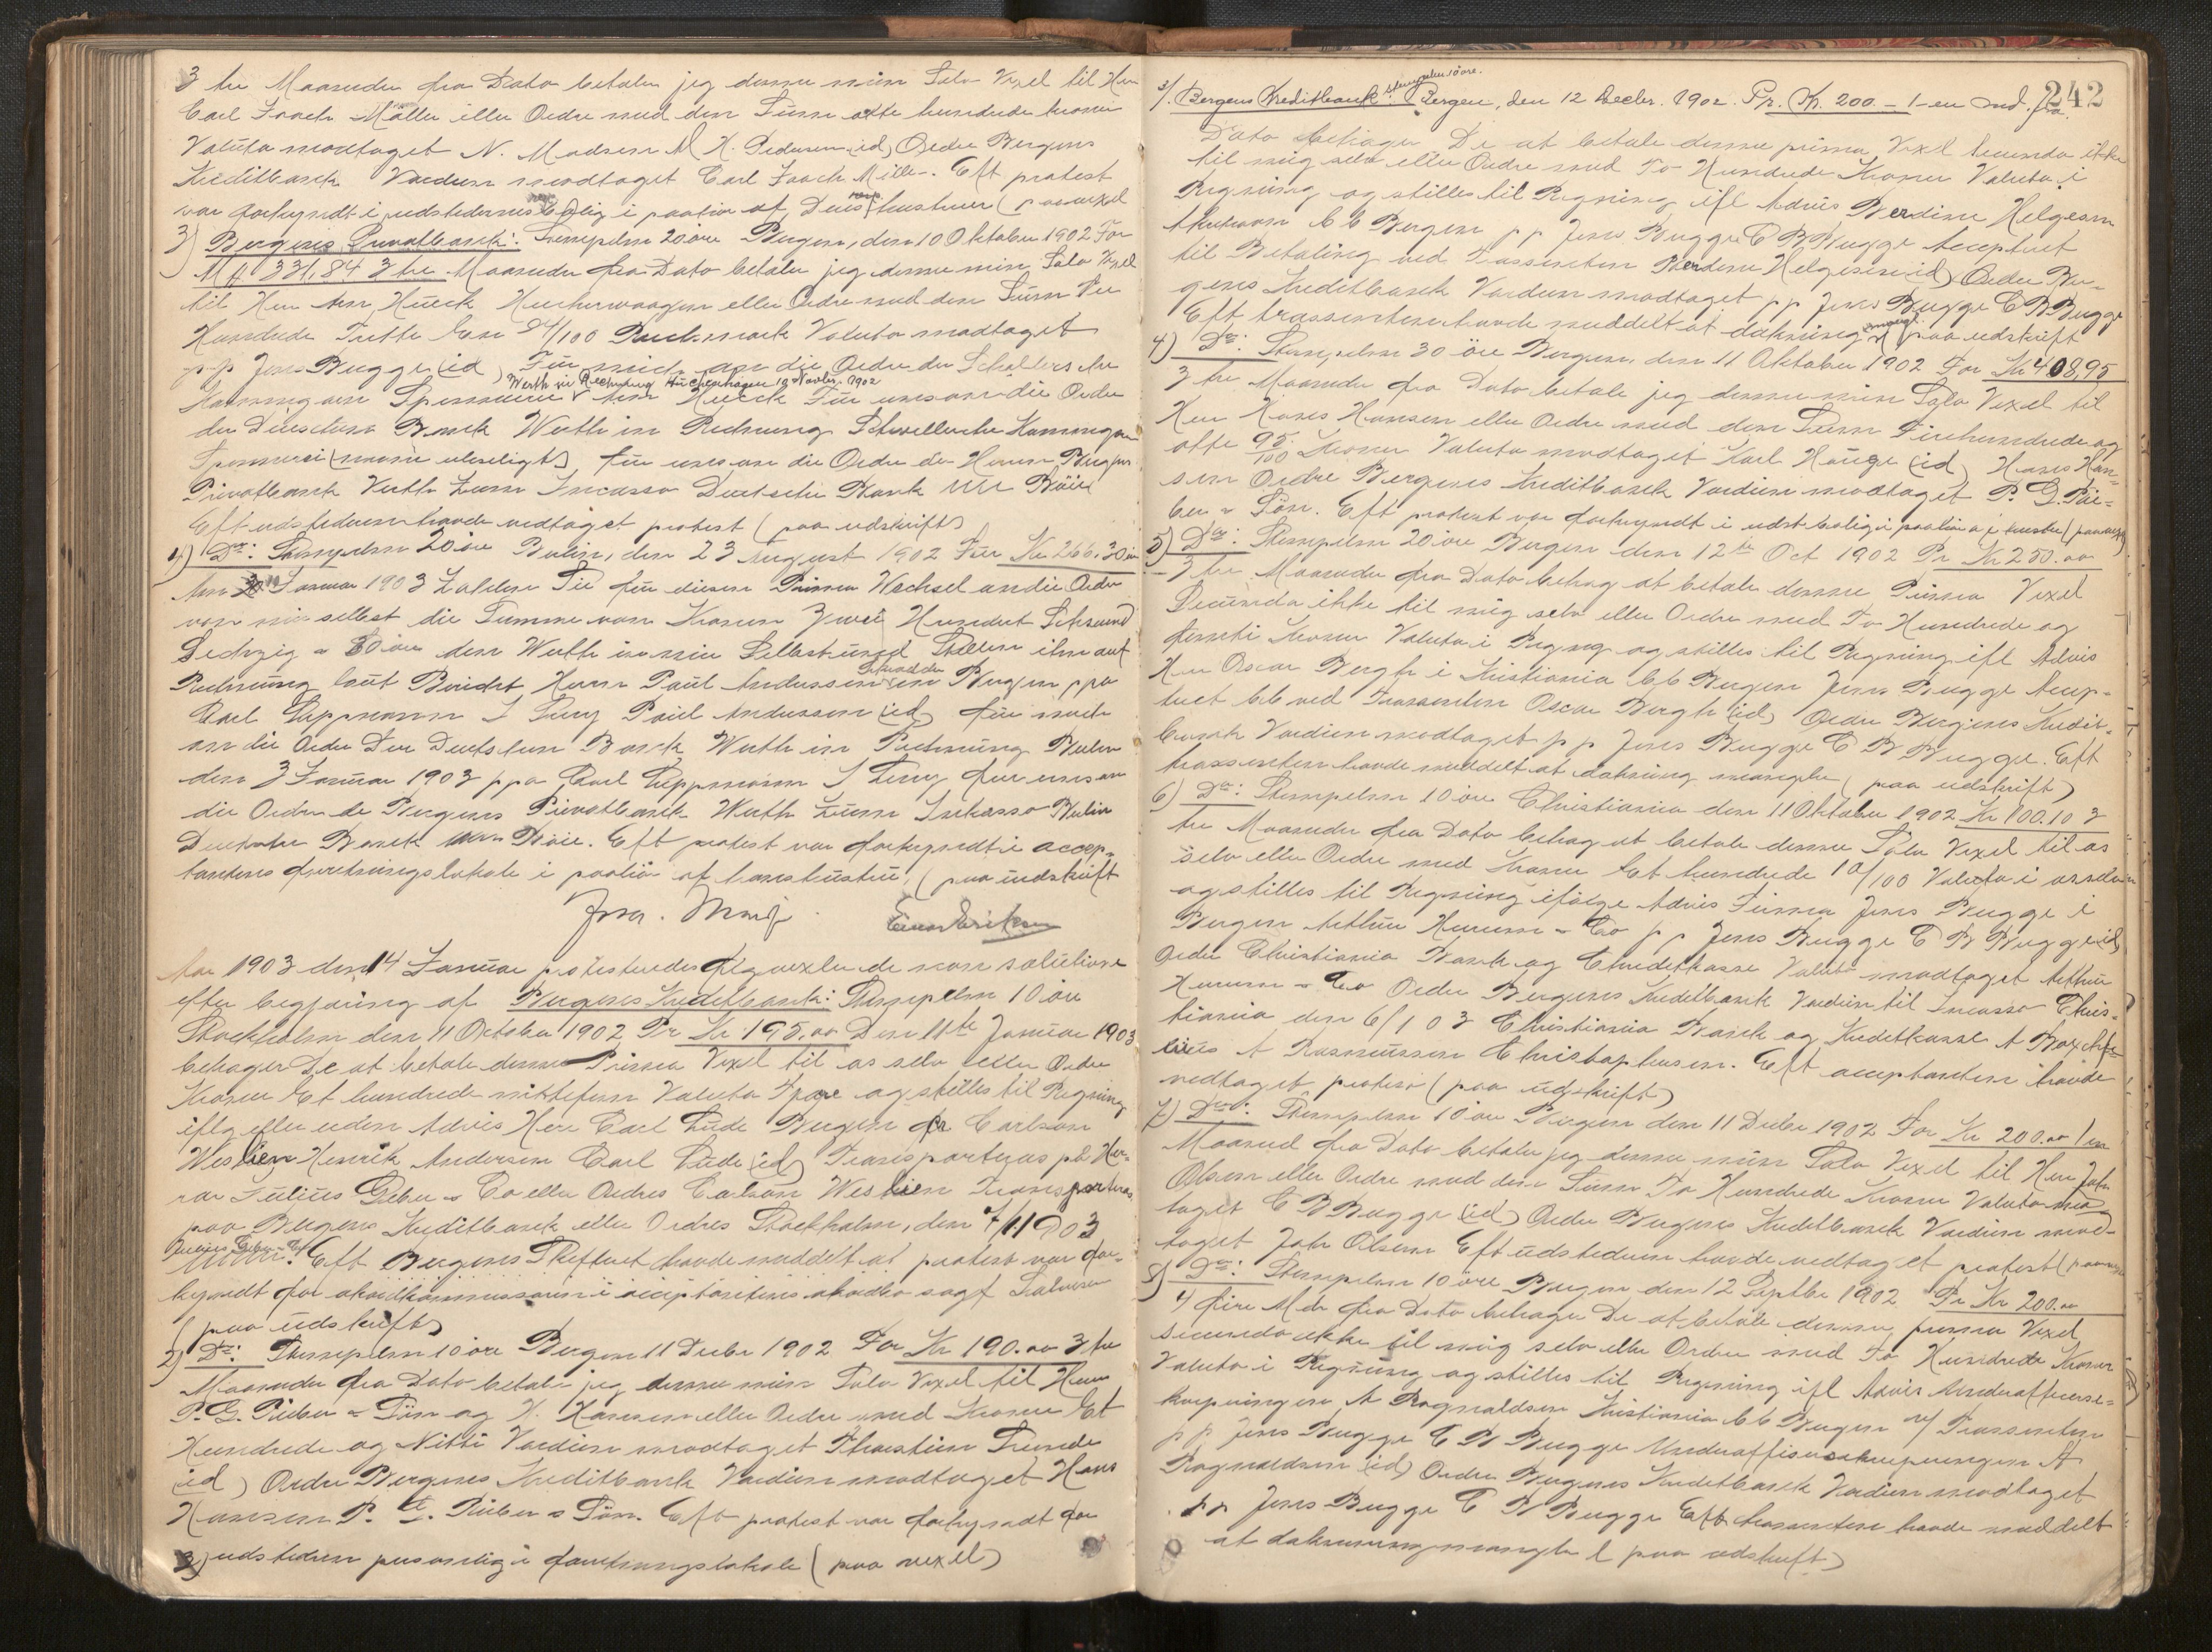 3 tre Maaneder fra Dato betaler jeg denne min Sola Vexel til Herr
Carl Joach Møller eller Ordre med den Sum otte hundrede kroner
Valuta modtaget N. Madsen M H. Pedersen (id) Ordre Bergens
Kreditbank Værdien modtaget Carl Joach Møller. Eft protest
var forkyndt i udstedernes bolig i paahør af hustruer (paa vexel
3) Bergens Privatbank: Stempelm 20 øre Bergen, den 10 Oktober 1902 For
Mk 331,84 3 tre Maaneder fra Dato betaler jeg denne min Sola Vexel
til Herr Hueck eller Ordre med den Sum Tre
Hundrede Tretti En 84/100 Reichsmark Valuta modtaget
p.p Jens Bugge (id) Für mich an die Ordre der
Werth in Rechnung 18 Novbr. 1902
Kammgarn Spinnerei Hueck Für uns an die Ordre
der Deutschen Bank Werth in Rechnung Kammgarn
Spinnerei für uns an die Ordre der Herren Bergens
Privatbank Werth zum Incasso Deutsche Bank
Eft udstederen havde vedtaget protest (paa udskrift)
4) Do: Stempelm 20 øre Berlin, den 23 August 1902 Für Kr 266.30 øre
Am 10 Januar 1903 Zahlen Sie für diesen Prima Wechsel an die Ordre
von mir selbst die Summe von Kronen Zwei Hundert Sechsund
Sechzig & 30 øre den Werth in mir Selbst und Stellen ihn auf
Rechnung laut Bericht Herrn Paul Andersen in Bergen ppa
Carl Lippmann Paul Andersen (id) für mich
an die Ordre Der Deutschen Bank Werth in Rechnung Berlin
den 3 Januar 1903 ppa Carl Lippmann für uns an
die Ordre de Bergens Privatbank Werth zum Inkasso Berlin
Deutsche Bank. Eft protest var forkyndt i accep-
tantens forretningslokale i paahør af hans hustru, (paa udskrift
Aar 1903 den 14 Januar protesteredes følg vexler de non solutione
efter begjæring af Bergens Kreditbank: Stempelm 10 øre
Stockholm den 11 October 1902 Pr Kr 195,00 Den 11te Januar 1903
behager De at betale denne Prima Vexel til os selv eller Ordre
Kroner Et hundrede nittefem Valuta og stilles til Regning
iflg eller uden Advis Herr Carl Lude Bergen Carlson
Weslien Henrik Andersen Carl Lude (id) Transporteras på Her-
rar Julius Geber & Co eller Ordres Carlson Weslien Transporteras
paa Bergens Kreditbank eller Ordres Stockholm, den 7/1 1903
Julius Geber & Co
Eft Bergens Skifteret havde meddelt at protest var for-
kyndt for i acceptantens akkordsag
(paa udskrift)
2) Do: Stempelm 10 øre Bergen 11 Decbr 1902 For Kr 190.00 3 tre
Maaneder fra Dato betaler jeg denne min Sola Vexel til Herr
P. G. Rieber & Søn og H. Hansen eller Ordre med Kroner Et
Hundrede og Nitti Værdien modtaget Thorstein
(id) Ordre Bergens Kreditbank Værdien modtaget Hans
Hansen P. G. Rieber & Søn. Eft protest var forkyndt for
udstederen personlig i forretningslokale (paa vexel)
242
3/. Bergens Kreditbank: Stempelm 10 øre. Bergen, den 12 Decbr. 1902. Pr. Kr. 200 - 1 - en md. fra
Dato behager De at betale denne prima Vexel Secunda ikke
til mig selv eller Ordre med To Hundrede Kroner Valuta i
Regning og stilles til Regning ifl Advis Berdine Helgesen
Bergen p p Jens Bugge C B Bugge Acceptert
til Betaling ved Trassenten Berdine Helgesen (id) Ordre Ber-
gens Kreditbank Værdien modtaget pp Jens Bugge C B Bugge
Eft trassenten havde meddelt at dækning mangl (paa udskrift
4) Do: Stempelm 30 øre Bergen, den 11 Oktober 1902 For Kr 408,95
3 tre Maaneder fra Dato betaler jeg denne min Sola Vexel til
Herr Hans Hansen eller Ordre med den Sum Firehundrede og
otte 95/100 Kroner Valuta modtaget Karl Hauge (id) Hans Han-
sen Ordre Bergens Kreditbank Værdien modtaget P. G. Rie-
ber & Søn. Eft protest var forkyndt i udst bolig i paahør af hustru (paa vexel)
5) Do: Stempelm 20 øre Bergen den 12te Oct 1902 Pr Kr 250.00
3 tre Maaneder fra Dato behag at betale denne Prima Vexel
Secunda ikke til mig selv eller Ordre med To Hundrede og
femti Kroner Valuta i Regng og stilles til Regning ifl Advis
Herr Oscar Bergh i Kristiania Bergen Jens Bugge Accep-
teret ved Trassenten Oscar Bergh (id) Ordre Bergens Kredit-
bank Værdien modtaget p p Jens Bugge C B Bugge. Eft
trassenten havde meddelt at dækning mangler (paa udskrift)
6) Do: Stempelm 10 øre Christiania den 11 Oktober 1902 Kr 100.10 3
tre Maaneder fra Dato behag at betale denne Sola Vexel til os
selv eller Ordre med Kroner Et hundrede 10/100 Valuta i os selv
og stilles til Regning ifølge Advis Firma Jens Bugge i
Bergen & Co p p Jens Bugge C B Bugge (id)
Ordre Christiania Bank og Kreditkasse Valuta modtaget
& Co Ordre Bergens Kreditbank Værdien til Incasso Chris-
tiania den 6/1 03 Christiania Bank og Kreditkasse
A Rasmussen Christophersen. Eft acceptanten havde
vedtaget protest (paa udskrift)
7) Do: Stempelm 10 øre Bergen den 11 Decbr 1902 For Kr 200.00 1 en
Maaned fra Dato betaler jeg denne min Sola Vexel til Herr Johs
Olsen eller Ordre med den Sum To Hundrede Kroner Valuta mod-
taget C B Bugge (id) Ordre Bergens Kreditbank Værdien mod-
taget Johs Olsen Eft udstederen havde vedtaget protest (paa
8) Do: Stempelm 10 øre Bergen den 12 Septbr 1902 Pr Kr 200.00
4 fire Mdr fra Dato behager De at betale denne prima Vexel
secunda ikke til mig selv eller Ordre med To Hundrede Kroner
Valuta i Regning og stilles til Regning ifl Advis
A Ragnaldsen Kristiania Bergen v/ Trassenten
pp Jens Bugge C B Bugge A
Ragnaldsen (id) Ordre Bergens Kreditbank Værdien modtaget
pp Jens Bugge C B Bugge Eft trassenten havde meddelt
at dækning mangler (paa udskrift)